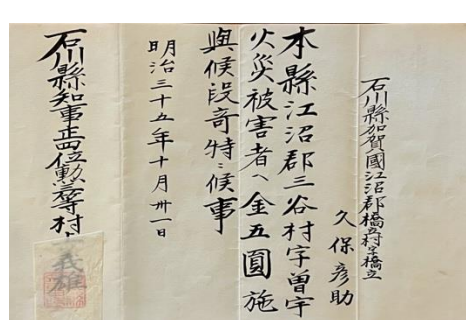 石川縣加賀國江沼郡橋立村字橋立
久保彦助
本縣江沼郡三谷村字曽宇
火災被害者ヘ金五圓施
與候段奇特ニ候事
明治三十五年十月卅一日
石川縣知事正四位勲三等村上義雄